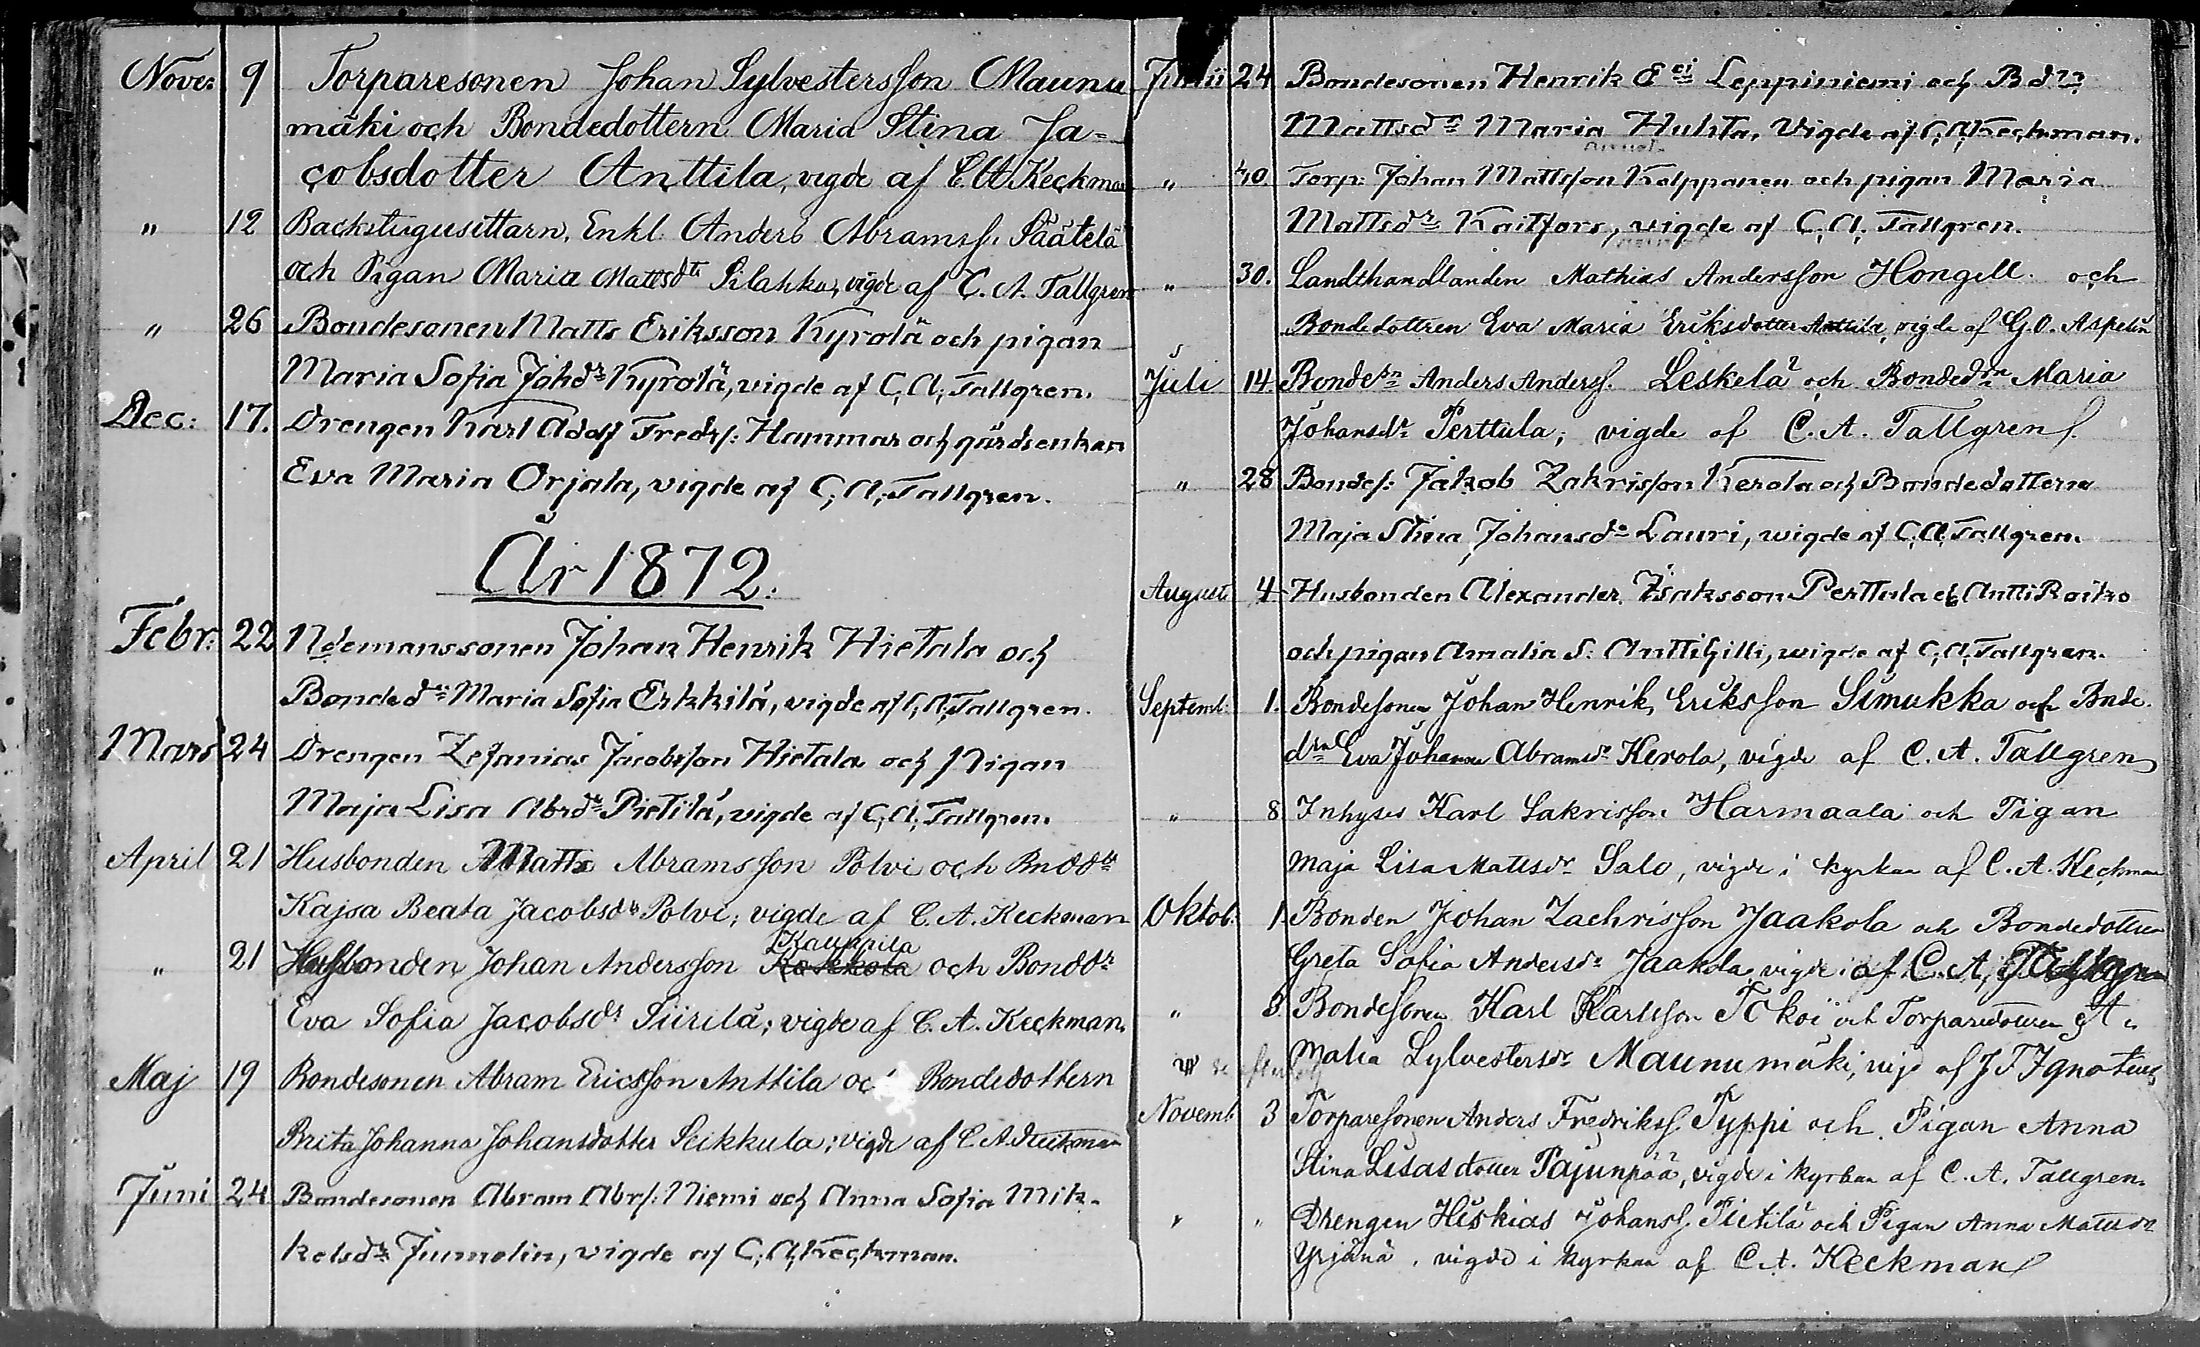 Nove: 9 Torparesonen Johan Sylvestersson Maunu
mäki och Bondedottern Maria Stina Ja=
cobsdotter Anttila, vigde af C.A. Keckman
" 12 Backstugusittarn, Enkl. Anders Abramss. Päätelä
och Pigan Maria Mattsdtr Silahka, vigde af C. A. Tallgren
" 26 Bondesonen Matts Eriksson Kyrolä och pigan
Maria Sofia Johdr Kyrolä, vigde af C. A. Tallgren.
Dec: 17. Drengen Karl Adolf Fredrs: Hammar och gårdsenkan
Eva Maria Orjala, vigde af C. A. Tallgren.
År 1872.
Febr: 22 Ndemanssonen Johan Henrik Hietala och
Bondedr Maria Sofia Erkkilä, vigde af C. A. Tallgren.
Mars 24 Drengen Zefanias Jacobsson Hietala och Pigan
Maja Lisa Abrdr Pietilä, vigde af C. A. Tallgren.
April 21 Husbonden Matts Abramsson Polvi och Bnddtr
Kajsa Beata Jacobsdtr Polvi, vigde af C. A. Keckman
Kauppila
" 21 Husbonden Johan Andersson och Bonddr
Eva Sofia Jacobsdr Siirilä; vigde af C. A. Keckman,
Maj 19 Bondesonen Abram Ericsson Anttila och Bondedottern
Brita Johanna Johansdotter Seikkula; vigde af C. A. Keckman
Juni 24 Bondesonen Abram Abrs: Niemi och Anna Sofia Mik-
kelsdr Jumolin, vigde af C. A. Keckman.
Junii 24 Bondesonen Henrik Leppiniemi och
Mattsdr Maria Huhta, Vigde af C. A. Keckman.
" 30. Torp: Johan Mattsson Kolppanen och pigan Maria
Mattsdr Kaitfors, vigde af C. A. Tallgren.
" 30. Landthandlanden Mathias Andersson Hongell och
Bondedottren Eva Maria Eriksdotter Anttila, vigde af G. O. Aspelin
Juli 14. Bondesn Anders Anderss. Leskelä och Bondedtn Maria
Johansdr Perttula; vigde af C. A. Tallgren
" 28 Bondes: Jakob Zakrisson Kerola och Bondedottern
Maja Stina Johansdr Lauri, wigde af C. A. Tallgren.
August 4 Husbonden Alexander Isaksson Perttula el. Antti Roiko
och pigan Amalia S: AnttiGilli, wigde af C. A. Tallgren.
Septemb: 1. Bondesonen Johan Henrik Eriksson Simukka och Bnde-
drn Eva Johanna Abramsdr Kerola, vigde af C. A. Tallgren
" 8 Inhyses Karl Sakrisson Harmaala och Pigan
Maja Lisa Mattsdr Salo, vigde i kyrkan af C. A. Keckman
Oktob: 1 Bonden Johan Zachrisson Jaakola och Bondedottren
Greta Sofia Andersdr Jaakola, vigde af C. A. Tallgren
" Bondesonen Karl Karlsson Tokoi och Torparedottren A-
malia Sylvestersdr Maunumäki, vigd af J F Ignatius
Novemb: 3 Torparesonen Anders Fredrikss. Typpi och Pigan Anna
Stina Lisasdotter Pajunpää, vigde i kyrkan af C. A. Tallgren.
" " Drengen Heskias Johanss. Pietilä och Pigan Anna Mattsdr
Yrjänä, vigde i kyrkan af C. A. Keckman